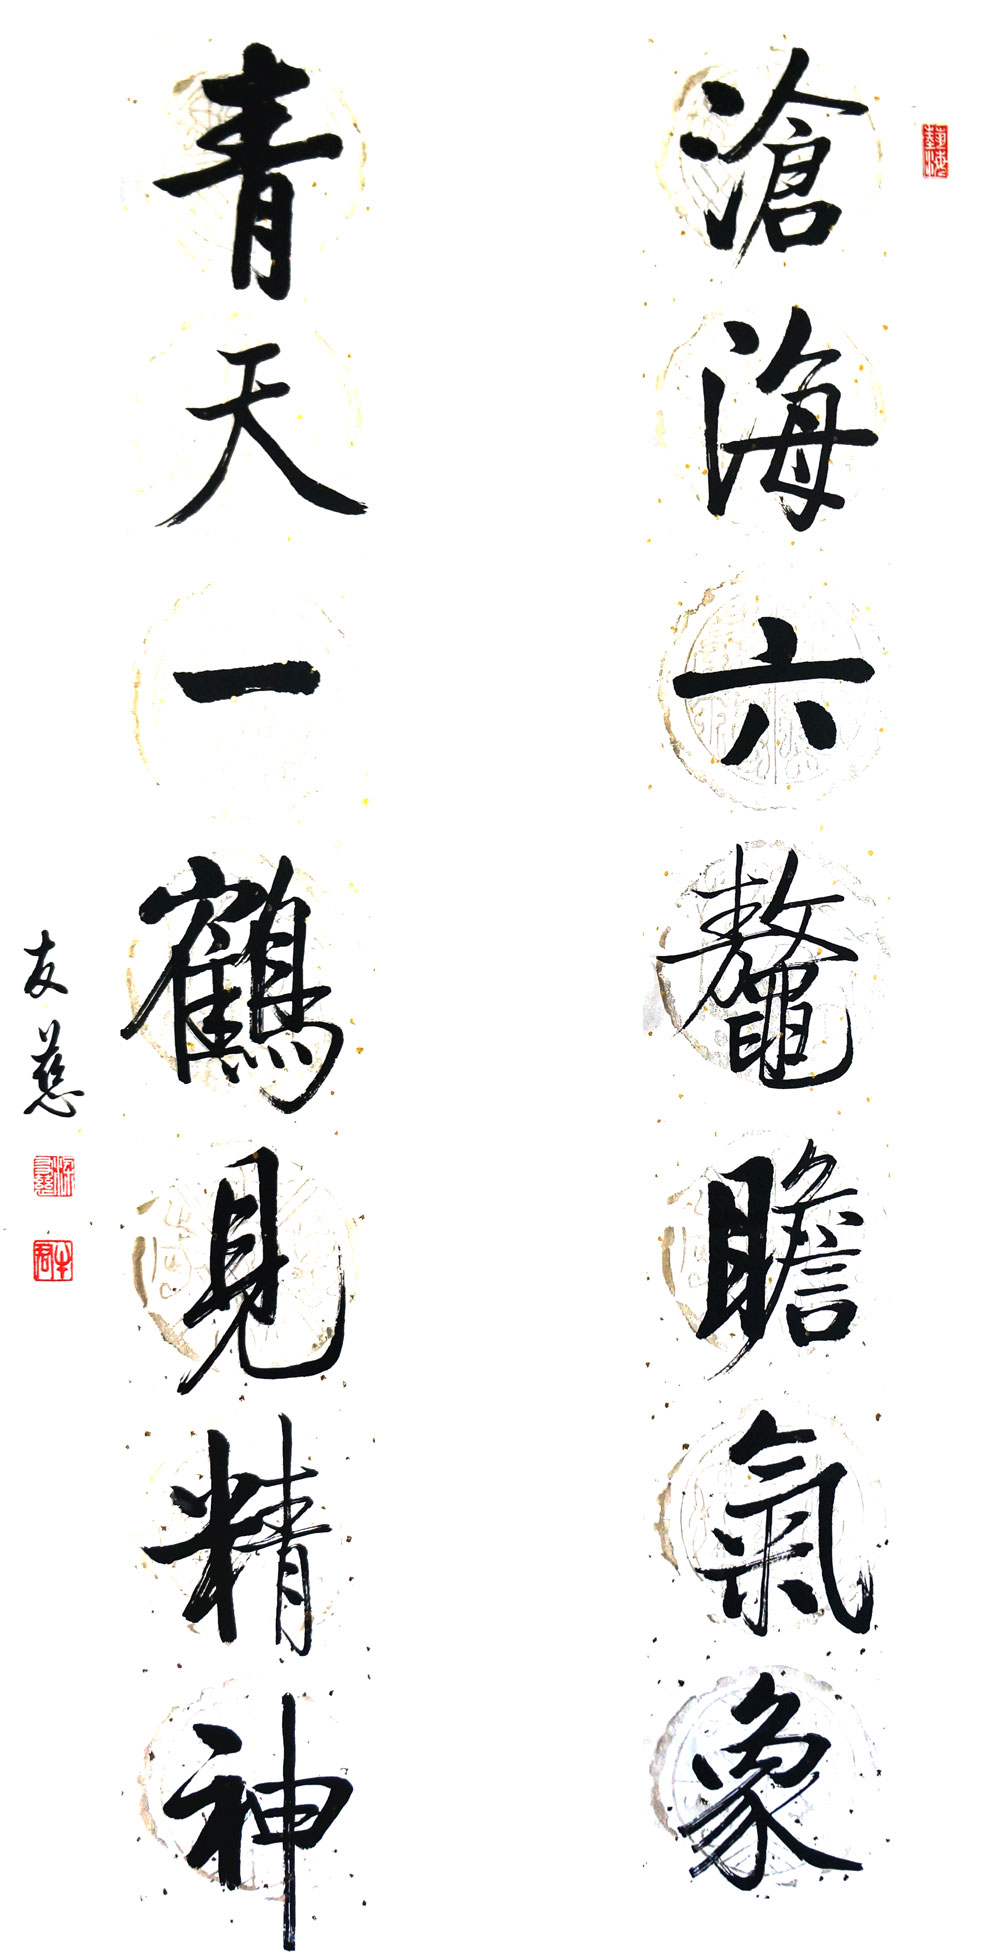 滄海六鼇瞻氣象
青天一鶴見精神
友慈